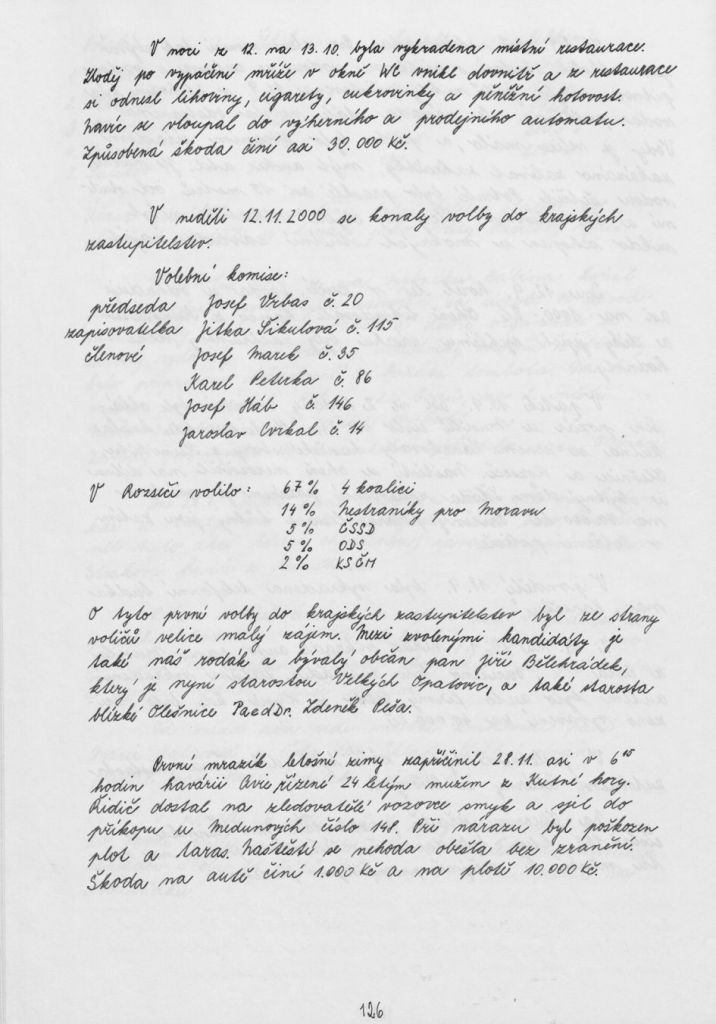 V noci z 12. na 13.10. byla vykradena místní restaurace.
Zloděj po vypáčení mříže v okně WC vnikl dovnitř a z restaurace
si odnesl lihoviny, cigarety, cukrovinky a peněžní hotovost.
Navíc se vloupal do výherního a prodejního automatu.
Způsobená škoda činí asi 30.000 Kč.
V neděli 12.11.2000 se konaly volby do krajských
zastupitelstev.
Volební komise:
předseda Josef Vrbas č. 20
zapisovatelka Jitka Sikulová č. 115
členové Josef Marek č. 35
Karel Peterka č. 86
Josef Háb č. 146
Jaroslav Cvrkal č. 14
V Rozseči volilo: 67% 4 koalici
14% Nestraníky pro Moravu
5% ČSSD
5% ODS
2% KSČM
O tyto první volby do krajských zastupitelstev byl ze strany
voličů velice malý zájem. Mezi zvolenými kandidáty je
také náš rodák a bývalý občan pan Jiří Bělehrádek,
který je nyní starostou Velkých Opatovic, a také starosta
blízké Olešnice PaedDr. Zdeněk Peša.
První mrazík letošní zimy zapříčinil 28.11. asi v 6
hodin havárii Avie řízené 24 letým mužem z Kutné hory.
Řidič dostal na zledovatělé vozovce smyk a sjel do
příkopu u Medunových číslo 148. Při nárazu byl poškozen
plot a taras. Naštěstí se nehoda obešla bez zranění.
Škoda na autě činí 1.000 Kč a na plotě 10.000 Kč.
126